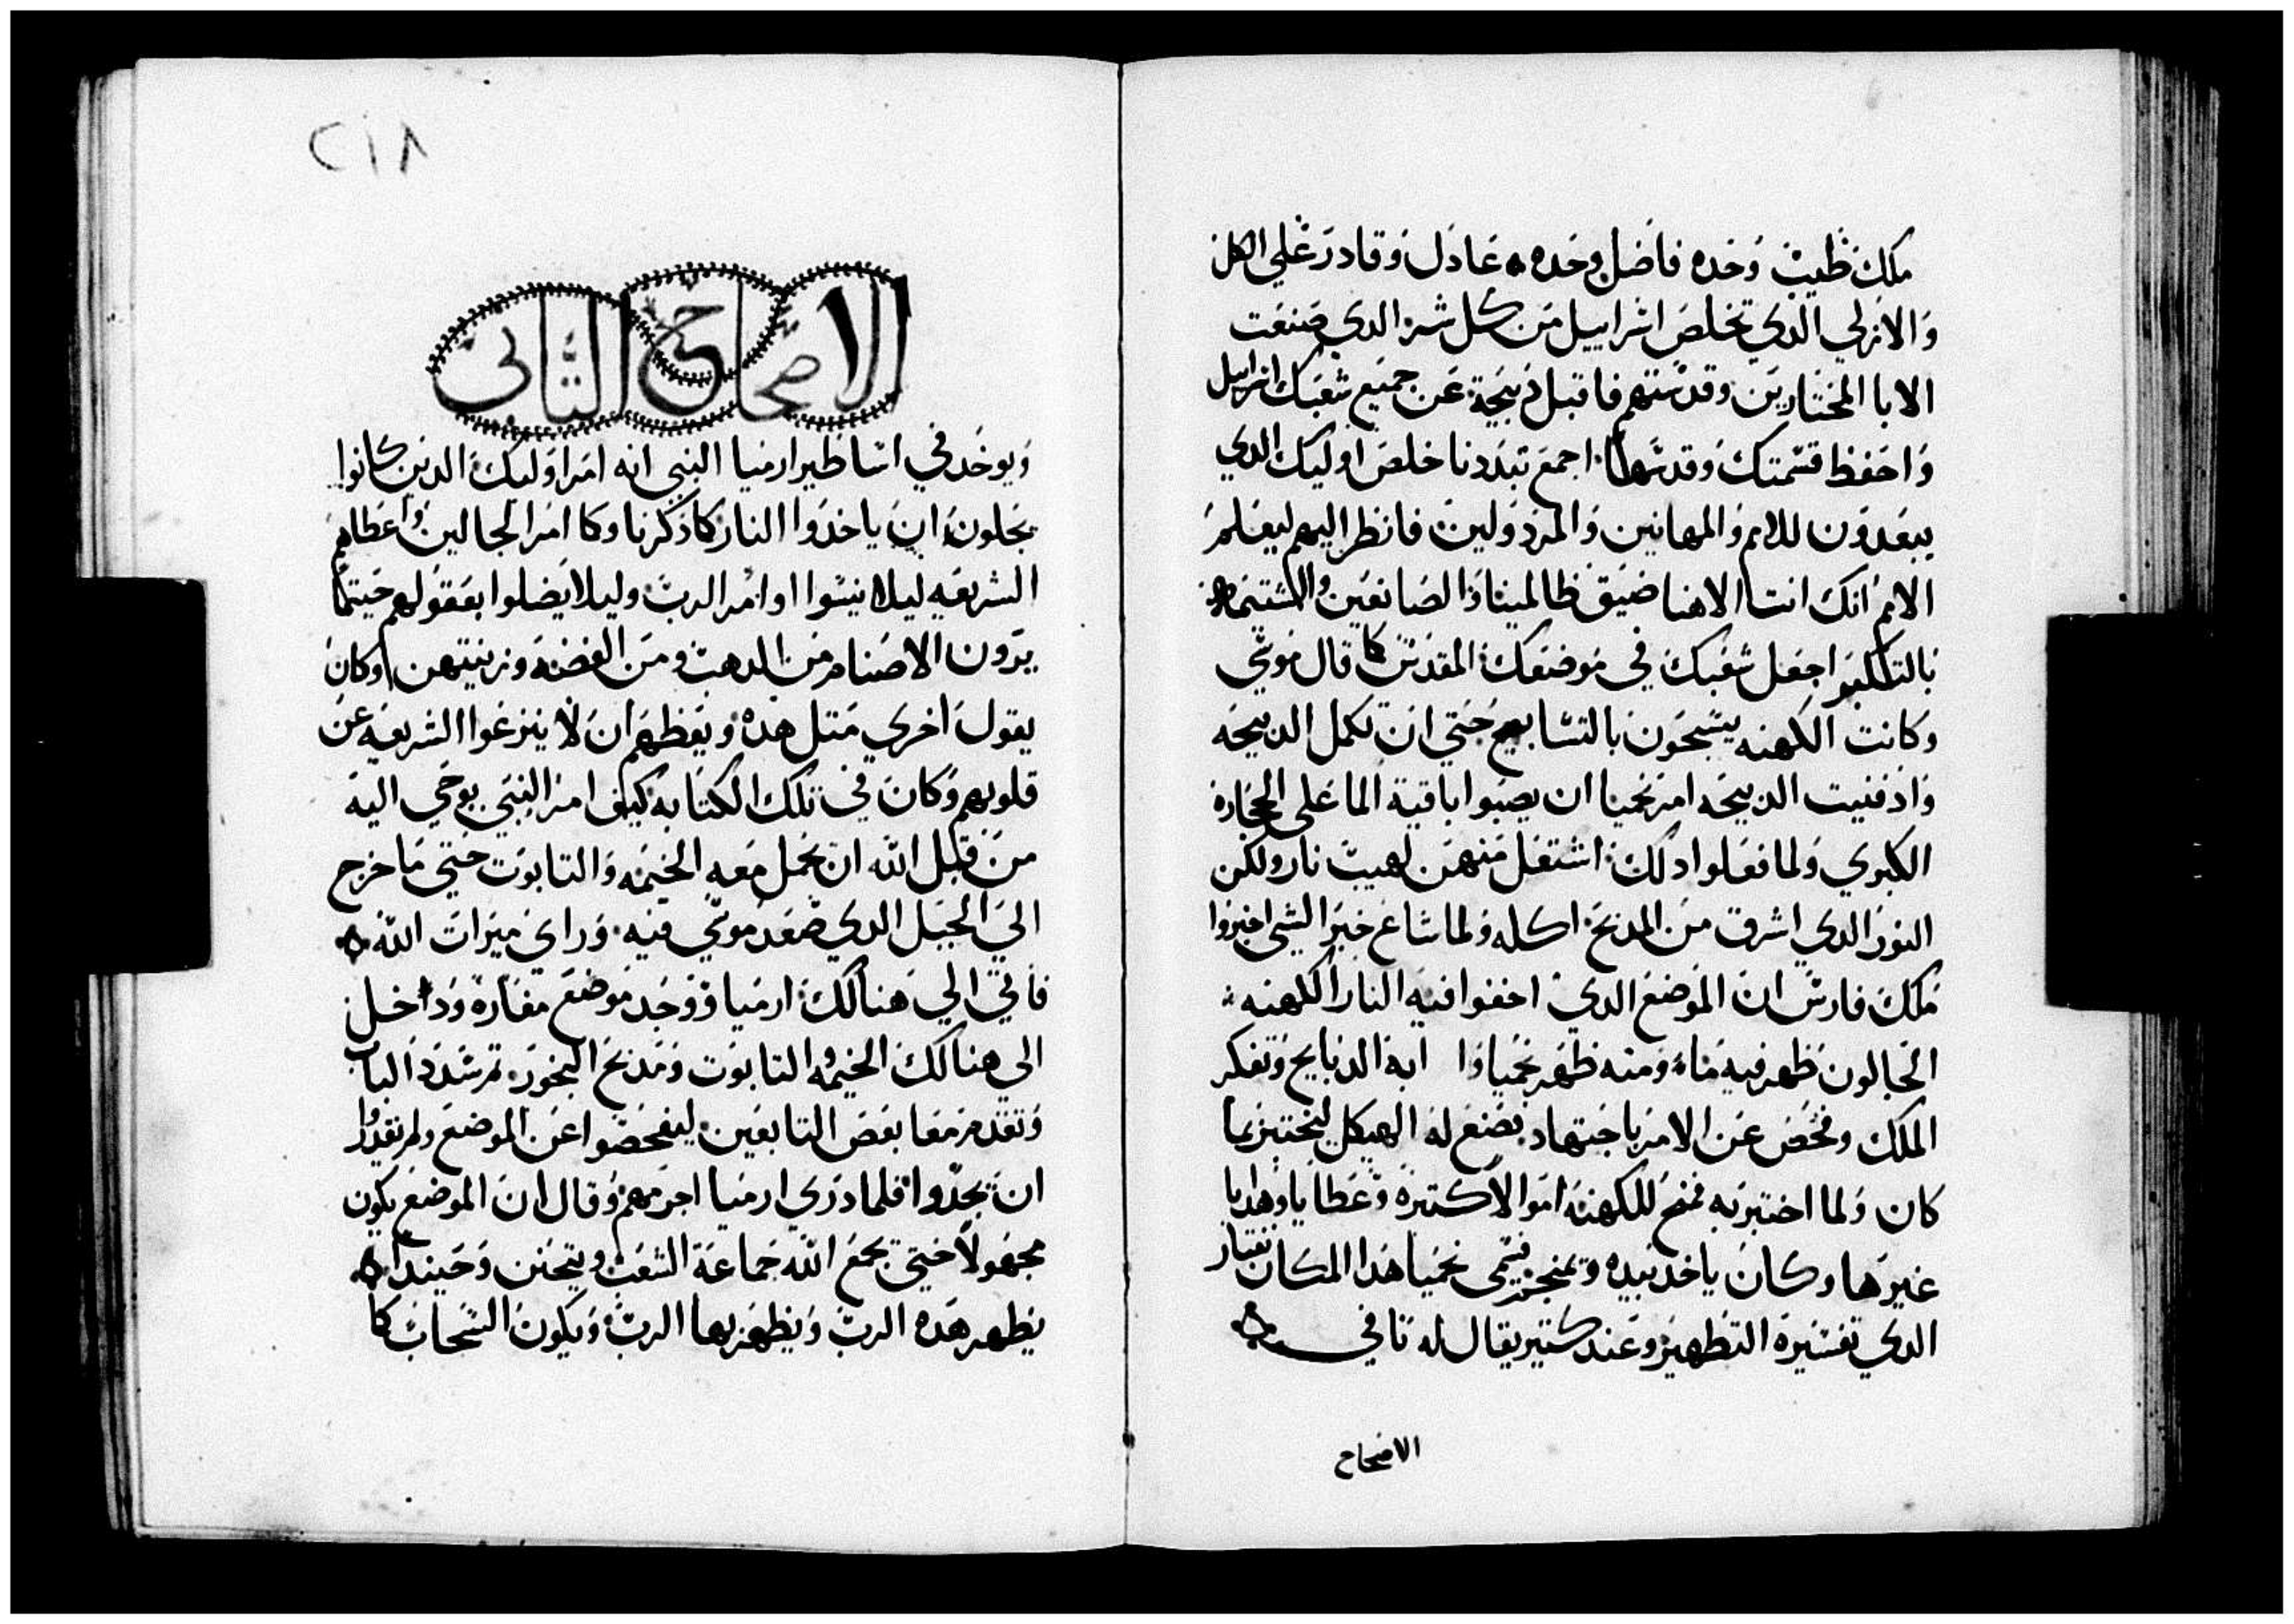 ملك طيب وحده فاضل وحده عادل وقادر علي الكل
والازلي الدي تخلص اسراييل من كل شر الدي صنعت
الابا المختارين وقدستهم فاقبل دبيحة عن جميع شعبك اسراييل
واحفظ قسمتك وقدسها اجمع تبددنا خلص اوليك الدي
يبعدون للامم والمهانين والمردولين فانظر اليهم ليعلم
الامم انك انت الاهنا ضيق ظالمينا والصانعين والشتيمه
بالتكبر اجعل شعبك في موضعك المقدس كما قال موسي
وكانت الكهنه يسبحون بالتسابيح حتي ان تكمل الدبيحه
واد فنيت الدبيحه امر نحميا ان يصبوا باقية الما على الحجارة
الكبري ولما فعلوا دلك اشتعل منهن لهيب نار ولكن
النور الدي اشرق من المدبح اكله ولما شاع خبر الشي اخبروا
ملك فارس ان الموضع الدي اخفوا فيه النار الكهنه
الجالون ظهر فيه ماء ومنه ظهر نحميا دابة الدبايح وتفكر
الملك وفحص عن الامر باجتهاد بصنع له الهيكل ليختبر بما
كان ولما اختبر به فمنح للكهنه اموالا كتيره وعطايا وهدايا
غيرها وكان ياخد بيده ويمنحهم فسمى نحميا هدا المكان نفتار
الدي تفسيره التطهير وعند كتير يقال له نافي
الاصحاح
٢١٨
الاصحاح التاني
ويوخد في اساطير ارميا النبي انه امر اوليك الدين كانوا
يجلون ان ياخدوا النار كما دكرنا وكما امر الجالين واعطاهم
الشريعه ليلا ينسوا اوامر الرب وليلا يضلوا بعقولهم حيتما
يرون الاصنام من الدهب ومن الفضه وزينتهن وكان
يقول اخري متل هده ويعظهم ان لا ينزعوا الشريعه عن
قلوبهم وكان في تلك الكتابه كيف امر النبي بوحي اليه
من قبل الله ان يحمل معه الخيمه والتابوت حتي ما خرج
الي الجبل الدي صعد موسي فيه وراى ميرات الله
فاتي الي هنالك ارميا ووجد موضع مغارة وداخل
الي هنالك الخيمه والتابوت ومدبح البخور تم شدد الباب
وتقدم معا بعض التابعين ليفحصوا عن الموضع ولم يقدروا
ان يجدوا فلما دري ارميا اجرمهم وقال ان الموضع يكون
مجهولا حتي يجمع الله جماعة الشعب ويتحنن وحينيدا
يظهر هده الرب ويظهر بها الرب ويكون السحاب كما